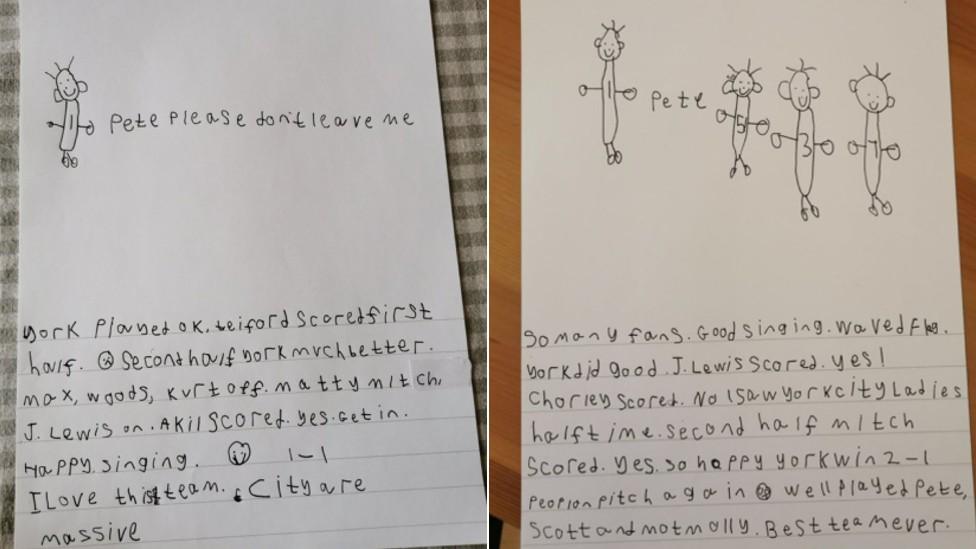 1
Pete Please don't leave me
York Played OK. telford scored first
half. Second half York much better.
max, woods, kurt off. matty mitch,
J. Lewis on. AKil Scored. yes. Get in.
Happy singing. 1-1
I Love this team. City are
massive
1
Pete
5
3
7
So many fans. Good singing. waved Flag.
York did good. J. Lewis scored. yes!
Chorley scored. No I saw York city Ladies
half time. second half mitch
Scored. Yes. so happy York win 2-1
People on pitch again well played Pete,
Scott and not molly. Best team ever.